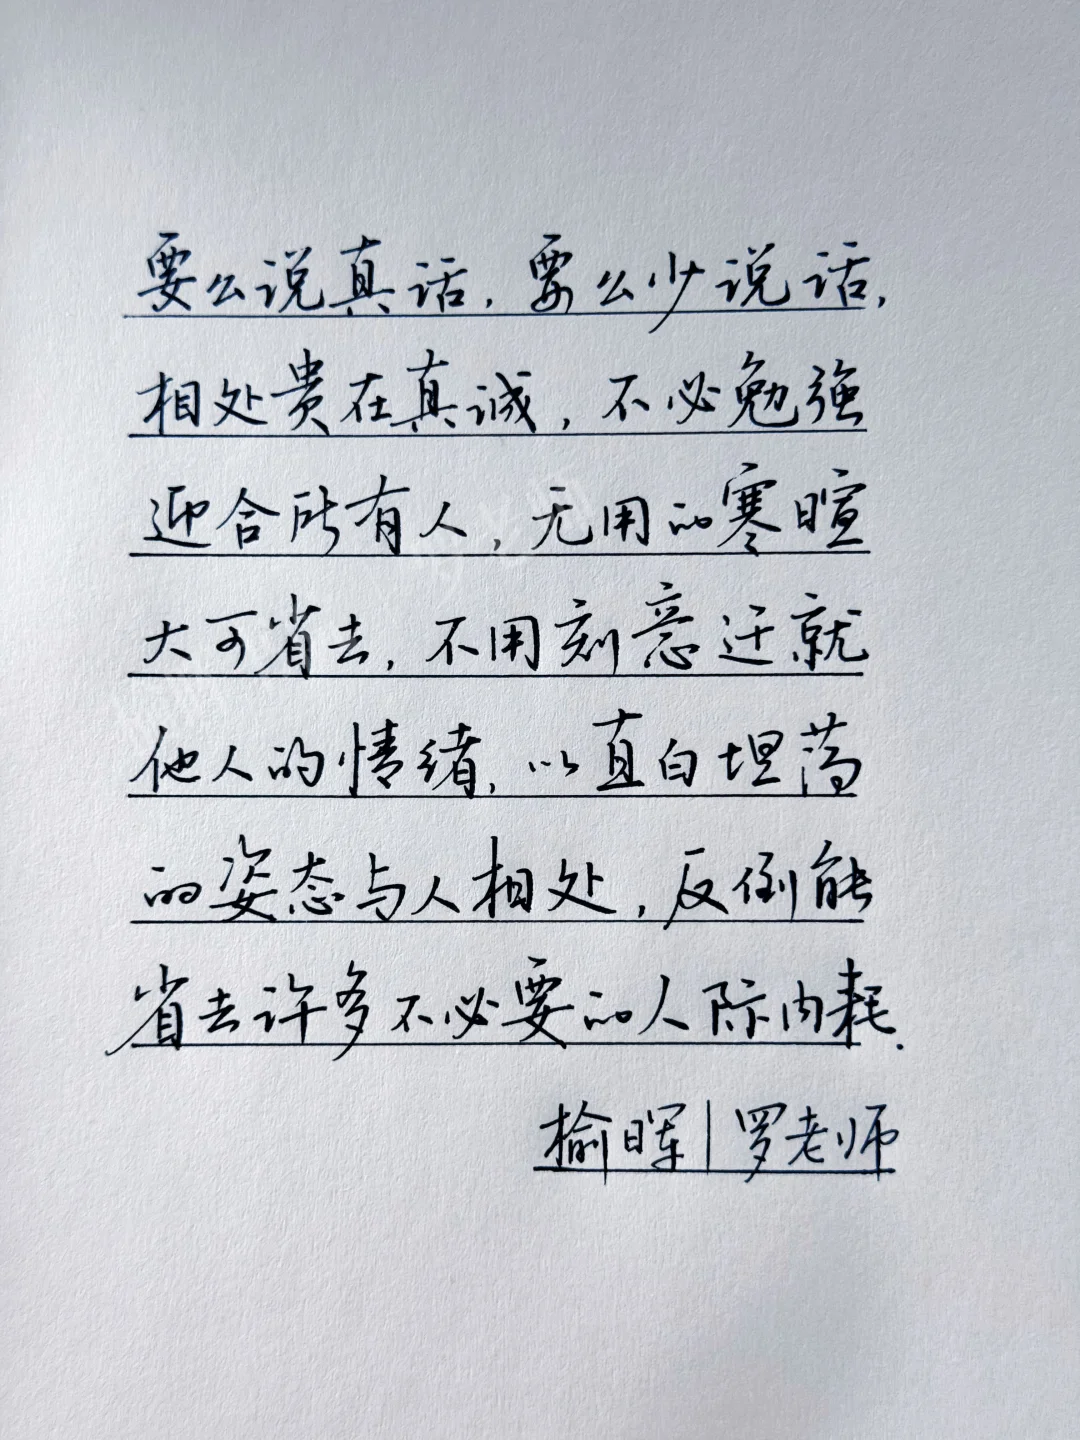 要么说真话，要么少说话，
相处贵在真诚，不必勉强
迎合所有人，无用的寒暄
大可省去，不用刻意迁就
他人的情绪，以直白坦荡
的姿态与人相处，反倒能
省去许多不必要的人际内耗.
榆晖|罗老师